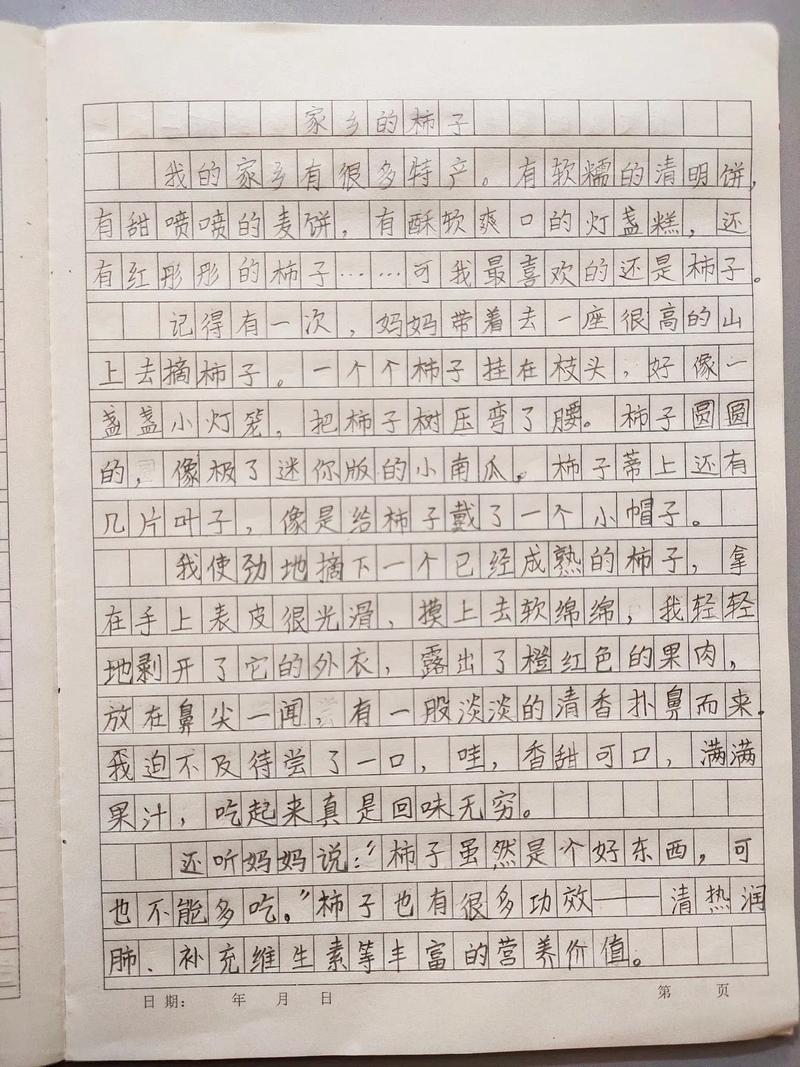 家乡的柿子
我的家乡有很多特产。有软糯的清明饼,
有甜喷喷的麦饼，有酥软爽口的灯盏糕，还
有红彤彤的柿子……可我最喜欢的还是柿子。
记得有一次，妈妈带着去一座很高的山
上去摘柿子。一个个柿子挂在枝头，好像一
盏盏小灯笼，把柿子树压弯了腰。柿子圆圆
的，像极了迷你版的小南瓜。柿子蒂上还有
几片叶子，像是给柿子戴了一个小帽子。
我使劲地摘下一个已经成熟的柿子，拿
在手上表皮很光滑，摸上去软绵绵，我轻轻
地剥开了它的外衣，露出了橙红色的果肉，
放在鼻尖一闻，有一股淡淡的清香扑鼻而来.
我迫不及待尝了一口，哇，香甜可口，满满
果汁，吃起来真是回味无穷。
还听妈妈说：“柿子虽然是个好东西，可
也不能多吃。”柿子也有很多功效——清热润
肺、补充维生素等丰富的营养价值。
日期： 年 月 日 第 页